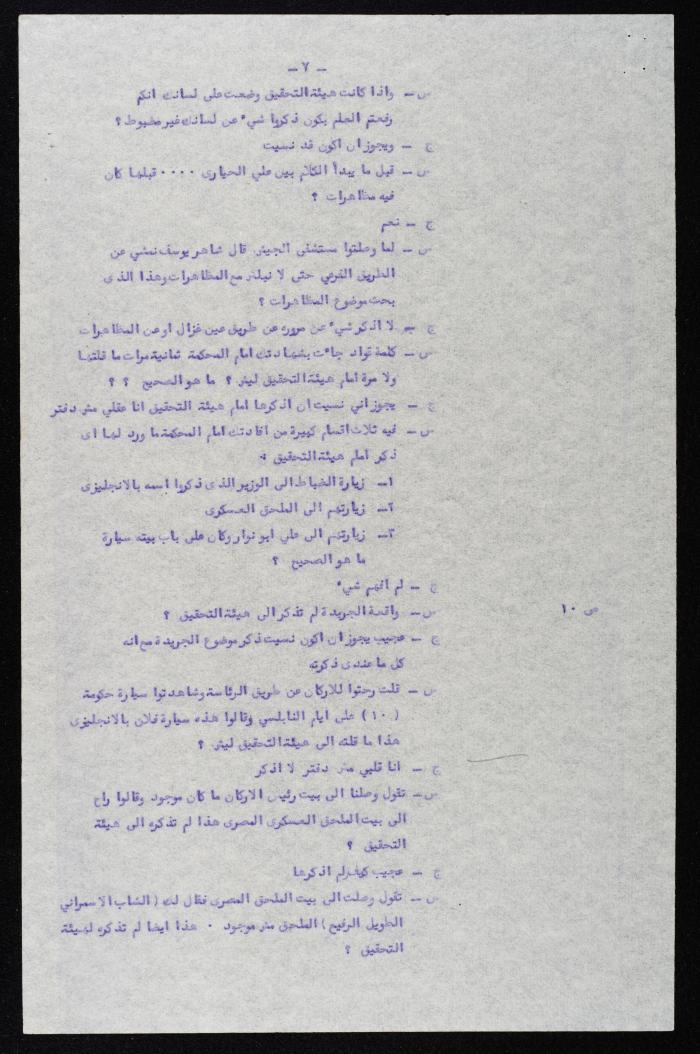 - ٧ -
س - واذا كانت هيئة التحقيق وضعت على لسانك انكم
رفعتم العلم يكون ذكروا شيء عن لسانك غير مضبوط ؟
ج - ويجوز ان اكون قد نسيت
س - قبل ما يبدأ الكلام بين علي الحيارى ٠٠٠٠ قبلها كان
فيه مظاهرات ؟
ج - نعم
س - لما وصلتوا مستشفى الجيش قال شاهر يوسف نمشي عن
الطريق الفرعي حتى لا نبلش مع المظاهرات وهذا الذى
بحث موضوع المظاهرات ؟
ج - لا اذكر شيء عن مروره عن طريق عين غزال او عن المظاهرات
س - كلمة قواد جاءت بشهادتك امام المحكمة ثمانية مرات ما قلتها
ولا مرة امام هيئة التحقيق ليش ؟ ما هو الصحيح ؟ ؟
ج - يجوز اني نسيت ان اذكرها امام هيئة التحقيق انا عقلي مش دفتر
س - فيه ثلاث اقسام كبيرة من افادتك امام المحكمة ما ورد لها اى
ذكر امام هيئة التحقيق :
١- زيارة الضباط الى الوزير الذى ذكروا اسمه بالانجليزى
٢- زيارتهم الى الملحق العسكرى
٣- زيارتهم الى علي ابو نوار وكان على باب بيته سيارة
ما هو الصحيح ؟
ج - لم افهم شيء
س - واقعة الجريدة لم تذكر الى هيئة التحقيق ؟
ص ١٠
ج - عجيب يجوز ان اكون نسيت ذكر موضوع الجريدة مع انه
كل ما عندى ذكرته
س - قلت رحتوا للاركان عن طريق الرئاسة وشاهدتوا سيارة حكومة
( ١٠ ) على ايام النابلسي وقالوا هذه سيارة فلان بالانجليزى
هذا ما قلته الى هيئة التحقيق ليش ؟
ج - انا قلبي مش دفتر لا اذكر
س - تقول وصلنا الى بيت رئيس الاركان ما كان موجود وقالوا راح
الى بيت الملحق العسكرى المصرى هذا لم تذكره الى هيئة
التحقيق ؟
ج - عجيب كيف لم اذكرها
س - تقول وصلت الى بيت الملحق المصرى فقال لك ( الشاب الاسمراني
الطويل الرفيع ) الملحق مش موجود ٠ هذا ايضا لم تذكره لهيئة
التحقيق ؟